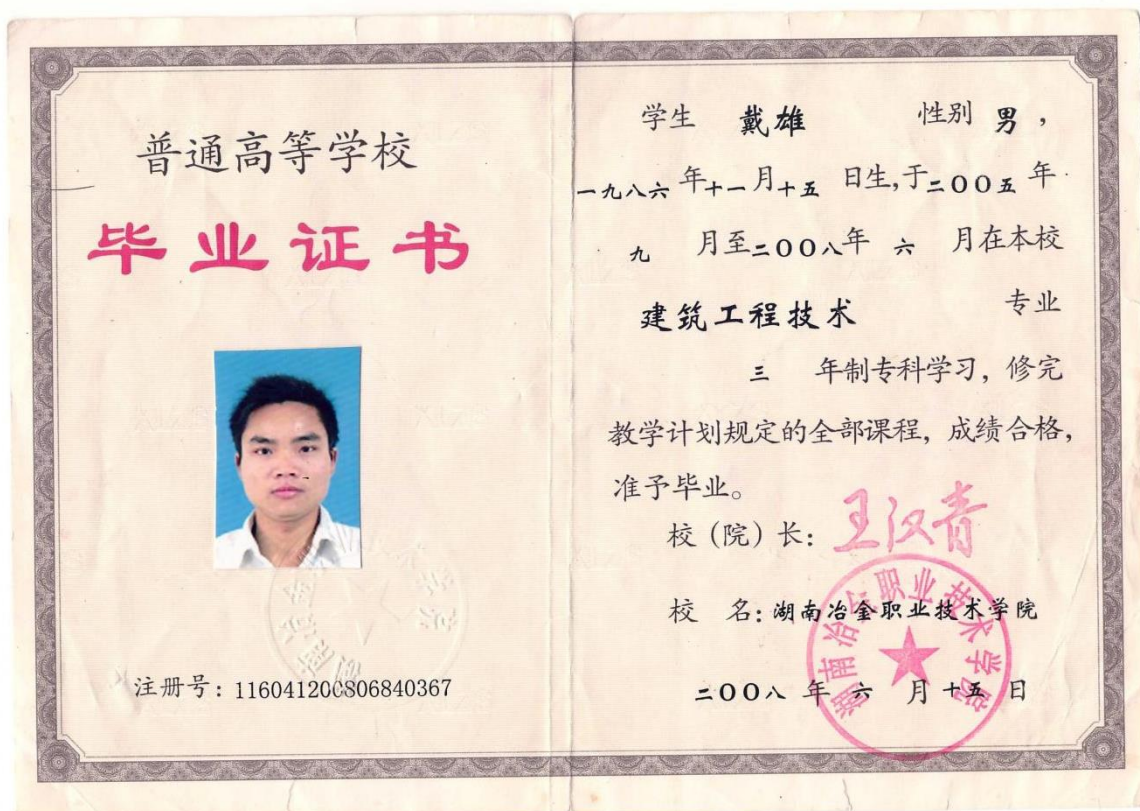 普通高等学校
毕业证书
注册号：116041200806840367
学生 戴雄 性别 男，
一九八六年十一月十五日生,于二〇〇五年
九月至二〇〇八年六月在本校
建筑工程技术 专业
三年制专科学习，修完
教学计划规定的全部课程，成绩合格，
准予毕业。
校（院）长：王汉青
校 名：湖南冶金职业技术学院
湖南冶金职业技术学院
二〇〇八年六月十五日